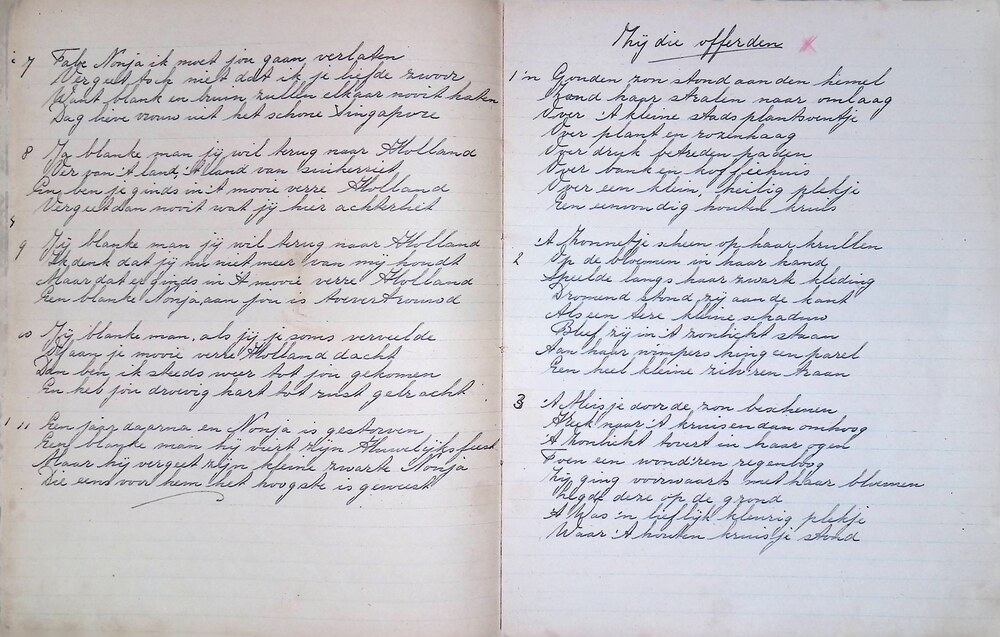 7 Tabe Nonja ik moet jou gaan verlaten
Vergeet toch niet dat ik je liefde zwoor
Want blank en bruin zullen elkaar nooit haten
Dag lieve vrouw uit het schone Singapore
8 Ja blanke man jij wil terug naar Holland
Ver van 't land, 't land van suikerriet
En ben je ginds in 't mooie verre Holland
Vergeet dan nooit wat jij hier achterliet
9 Jij blanke man jij wil terug naar Holland
Ik denk dat jij nu niet meer van mij houdt
Maar dat er ginds in 't mooie verre Holland
Een blanke Nonja, aan jou is toevertrouwd
10 Jij blanke man, als jij je soms verveelde
Of aan je mooie verre Holland dacht
Dan ben ik steeds weer tot jou gekomen
En heb jou droevig hart tot rust gebracht
11 Een jaar daarna en Nonja is gestorven
Een blanke man hij viert zijn Huwelijksfeest
Maar hij vergeet zijn kleine zwarte Nonja
Die eens voor hem het hoogste is geweest
Zij die offerden
1 'n Gouden zon stond aan den hemel
Zond haar stralen naar omlaag
Over 't kleine stadsplantsoentje
Over plant en rozenhaag
Over druk betreden paden
Over bank en koffiehuis
Over een klein, heilig plekje
Een eenvoudig houten kruis
't Zonnetje scheen op haar krullen
2 Op de bloemen in haar hand
Speelde langs haar zwarte kleding
Dromend stond zij aan de kant
Als een tere kleine schaduw
Bleef zij in 't zonlicht staan
Aan haar wimpers hing een parel
Een heel kleine zilv'ren traan
3 't Meisje door de zon beschenen
Keek naar 't kruis en dan omhoog
't Zonlicht tovert in haar ogen
Toen een wond'ren regenboog
Zij ging voorwaarts met haar bloemen
Legde deze op de grond
't Was 'n lieflijk kleurig plekje
Waar 't houten kruisje stond